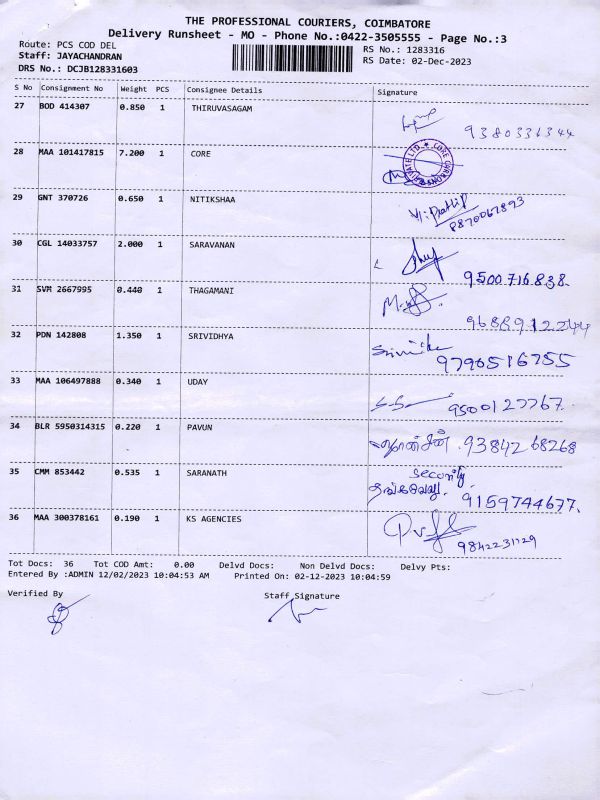 THE PROFESSIONAL COURIERS, COIMBATORE
Delivery Runsheet - MO - Phone No.:0422-3505555 - Page No.:3
Route: PCS COD DEL
RS No.: 1283316
Staff: JAYACHANDRAN
RS Date: 02-Dec-2023
DRS No.: DCJB128331603
S No Consignment No Weight PCS Consignee Details Signature
27 BOD 414307 0.850 1 THIRUVASAGAM
9380331344
28 MAA 101417815 7.200 1 CORE
29 GNT 370726 0.650 1 NITIKSHAA
8870067893
30 CGL 14033757 2.000 1 SARAVANAN
9500716838.
31 SVM 2667995 0.440 1 THAGAMANI
9688912244
32 PDN 142808 1.350 1 SRIVIDHYA
9790516755
33 MAA 106497888 0.340 1 UDAY
9500127767.
34 BLR 5950314315 0.220 1 PAVUN
9384268268
35 CMM 853442 0.535 1 SARANATH
security
9159744677.
36 MAA 300378161 0.190 1 KS AGENCIES
9842231129
Tot Docs: 36 Tot COD Amt: 0.00 Delvd Docs: Non Delvd Docs: Delvy Pts:
Entered By :ADMIN 12/02/2023 10:04:53 AM Printed On: 02-12-2023 10:04:59
Verified By Staff Signature